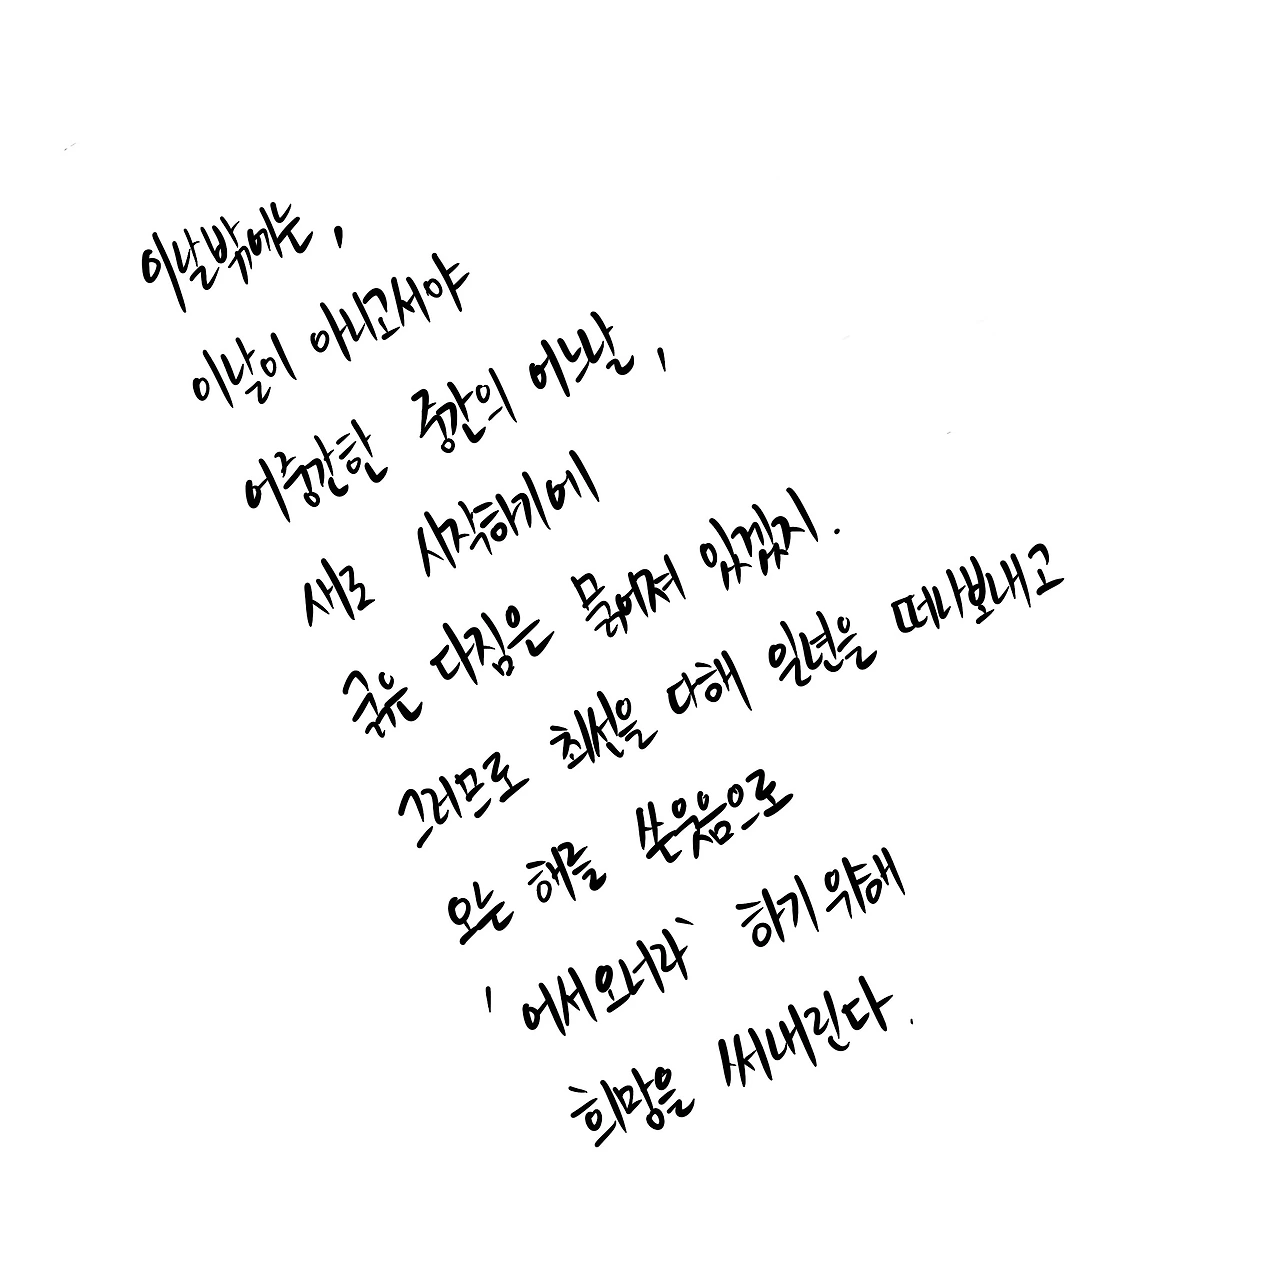 이날밖에는,
이날이 아니고서야
어중간한 중간의 어느날,
새로 시작하기에
굳은 다짐은 묽어져 있겠지.
그러므로 최선을 다해 일년을 떠나보내고
오는 해를 쓴웃음으로
'어서오너라` 하기위해
희망을 써내린다.